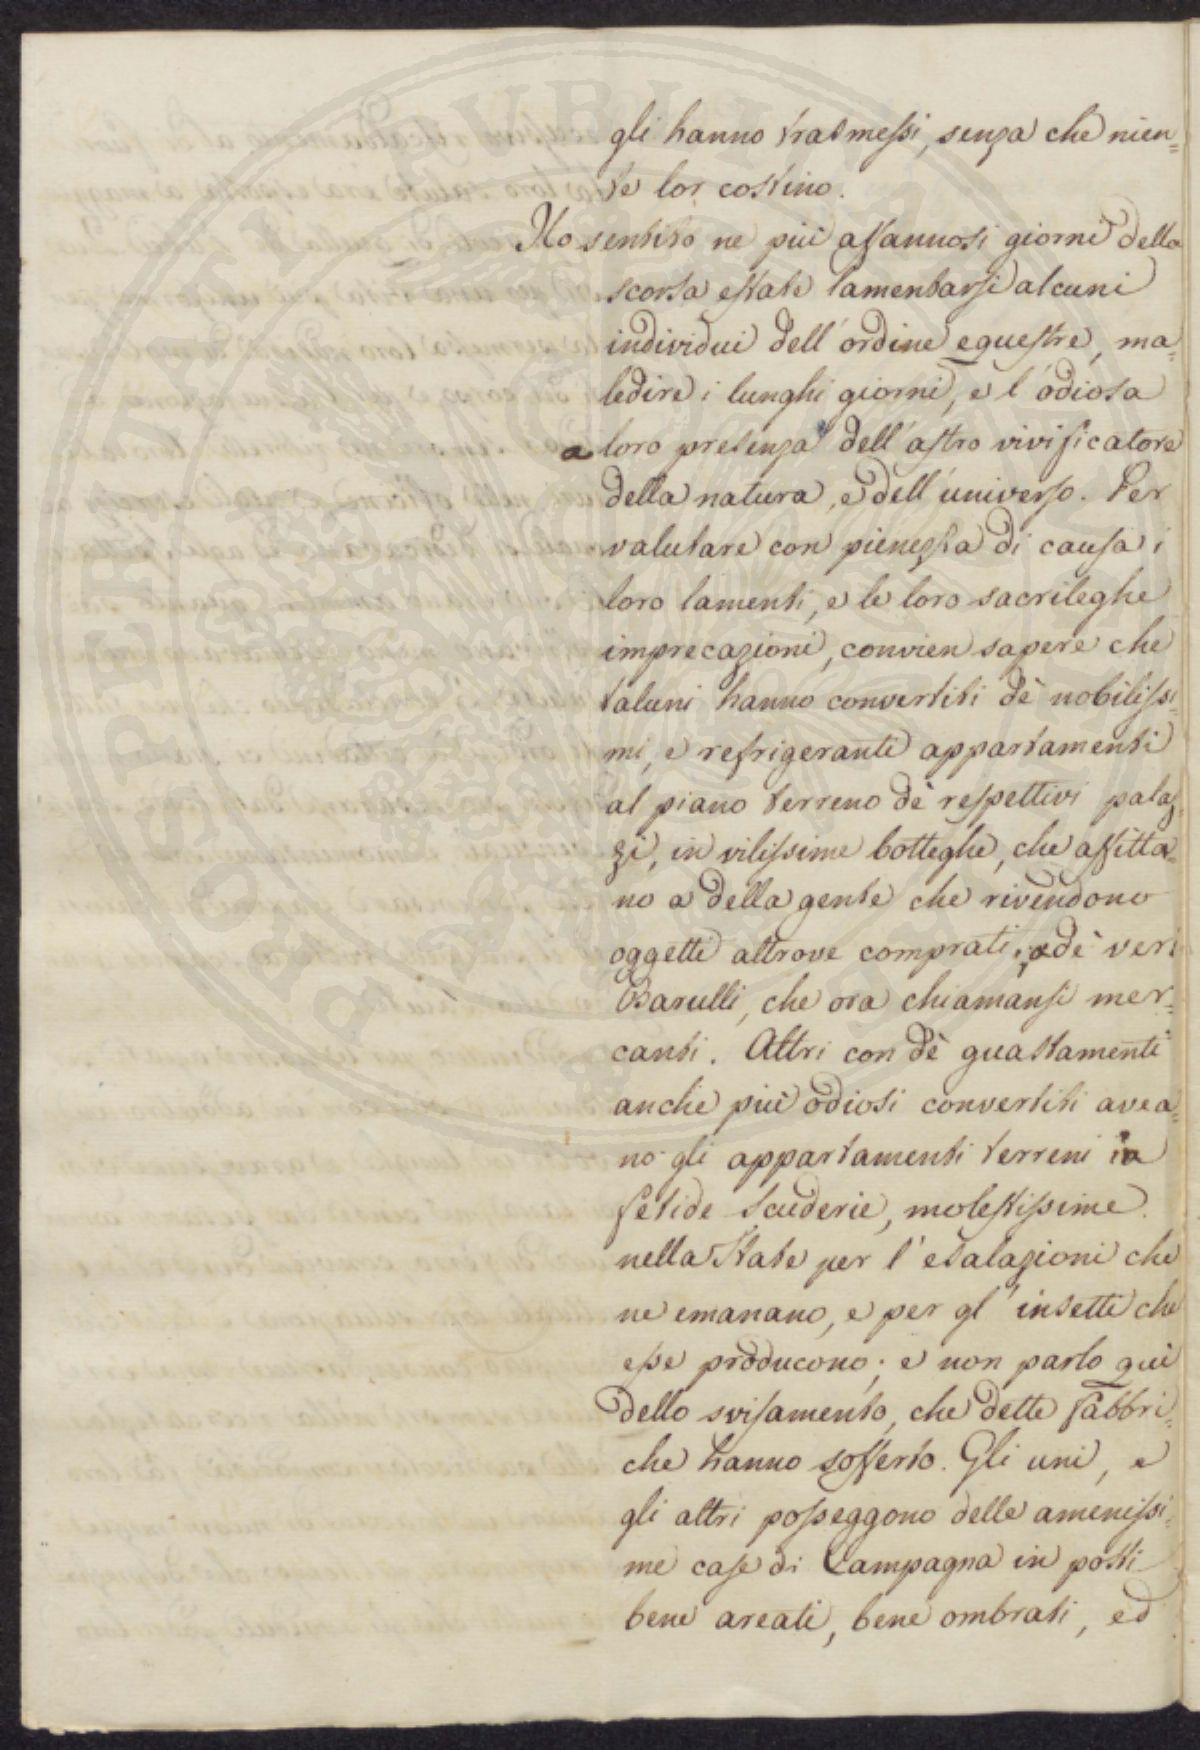 gli hanno trasmessi, senza che nien=
te lor costino.
Ho sentito ne più affannosi giorni della
scorsa estate lamentarsi alcuni
individui dell' ordine equestre, ma=
ledire i lunghi giorni, e l' odiosa
a loro presenza dell' astro vivificatore
della natura, e dell' universo. Per
valutare con pienezza di causa i
loro lamenti, e le loro sacrileghe
imprecazioni, convien sapere che
taluni hanno convertiti dè nobilissi=
mi, e refrigeranti appartamenti
al piano terreno dè respettivi palaz=
zi, in vilissime botteghe, che affitta=
no a della gente che rivendono
oggetti altrove comprati, a dè veri
Barulli, che ora chiamansi mer=
canti. Altri con dè guastamenti
anche più odiosi convertiti avea=
no gli appartamenti terreni in
fetide Scuderie, molestissime
nella State per l' esalazioni che
ne emanano, e per gl' insetti che
esse producono; e non parlo quì
dello svisamento, che dette fabbri=
che hanno sofferto. Gli uni, e
gli altri posseggono delle amenissi=
me case di Campagna in posti
bene areati, bene ombrati, ed
POSPERITATI PUBLICAE AUGENDAE